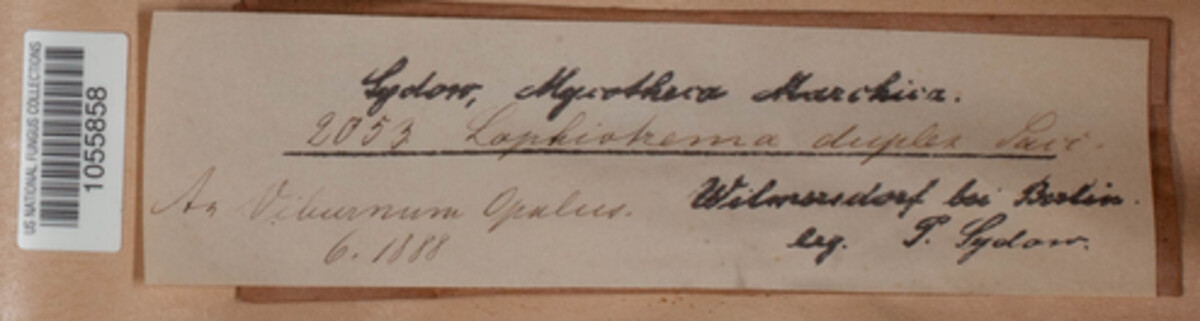 US NATIONAL FUNGUS COLLECTIONS
1055858
Sydow, Mycotheca Marchica.
2053 Lophiotrema duplex Sacc.
An Viburnum Opulus.
6. 1888
Wilmersdorf bei Berlin.
leg. P. Sydow.